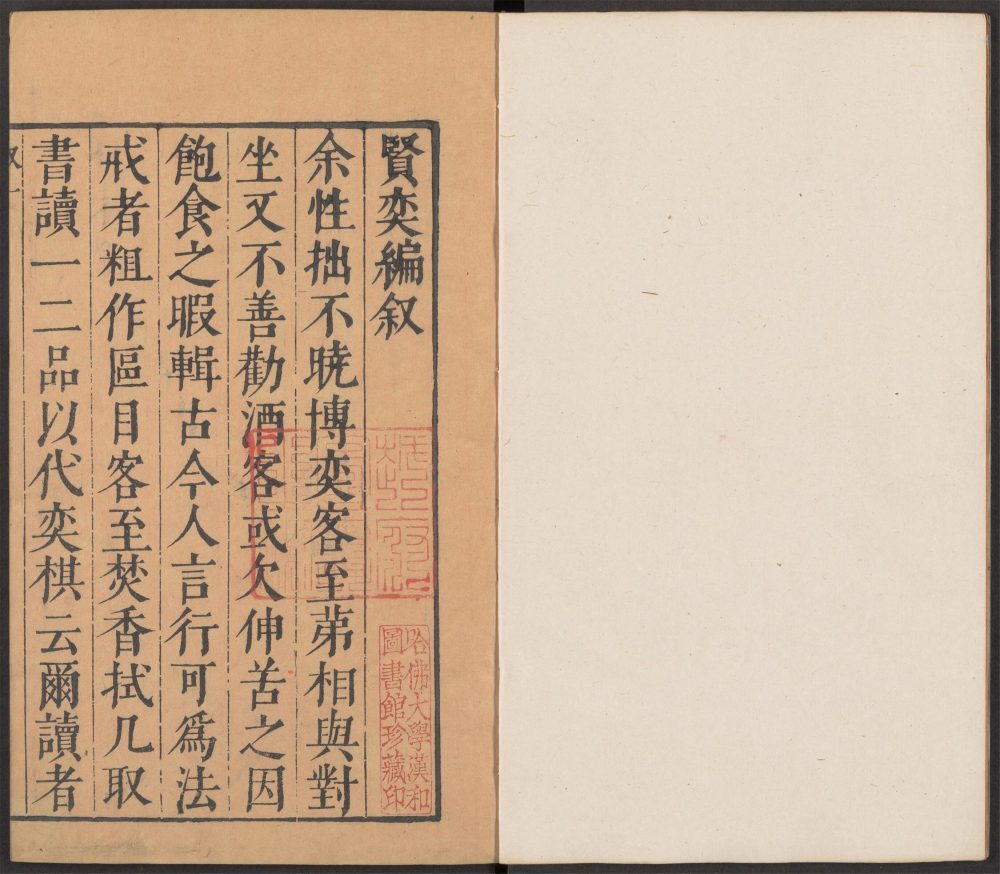 賢奕編叙
余性拙不曉博奕客至苐相與對
坐又不善勸酒客或欠伸苦之因
飽食之暇輯古今人言行可爲法
戒者粗作區目客至焚香拭几取
書讀一二品以代奕棋云爾讀者
哈佛大學漢和
圖書館珍藏印